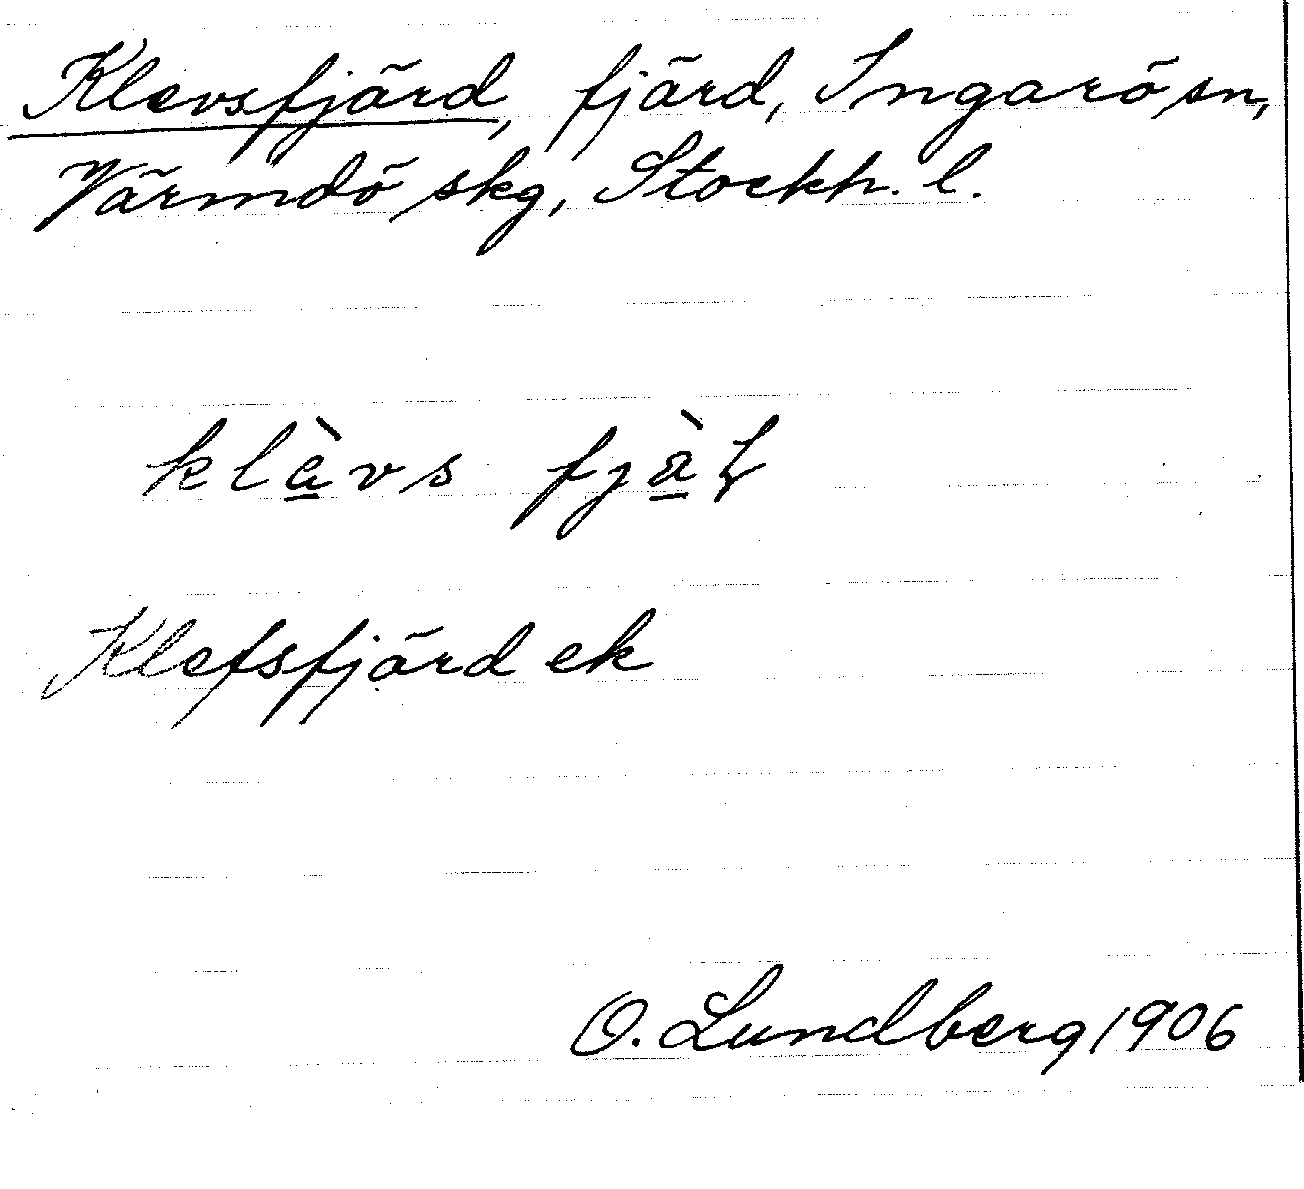 Klevsfjärd, fjärd, Ingarö sn,
Värmdö skg, Stockh. l.
klävs
Klefsfjärd ek
O. Lundberg 1906